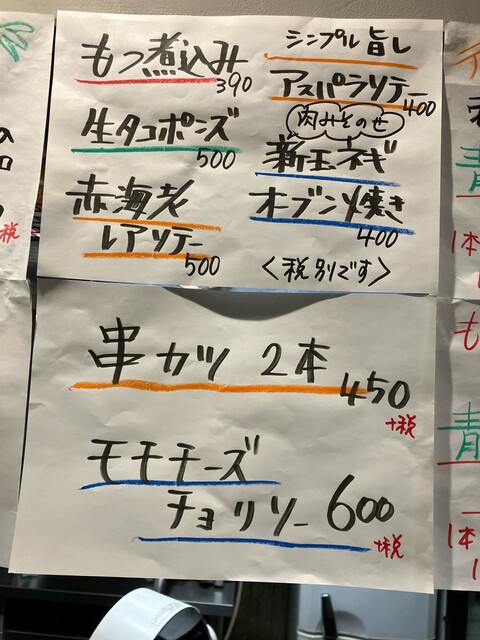 もつ煮込み
390
生タコポンズ
500
赤海老
レアソテー
500
シンプル旨し
アスパラソテー
400
肉みそのせ
新玉ネギ
オーブン焼き
400
<税別です>
串カツ 2本
450
+税
モモチーズ
チョリソー 600
+税
税
1本
も
1本